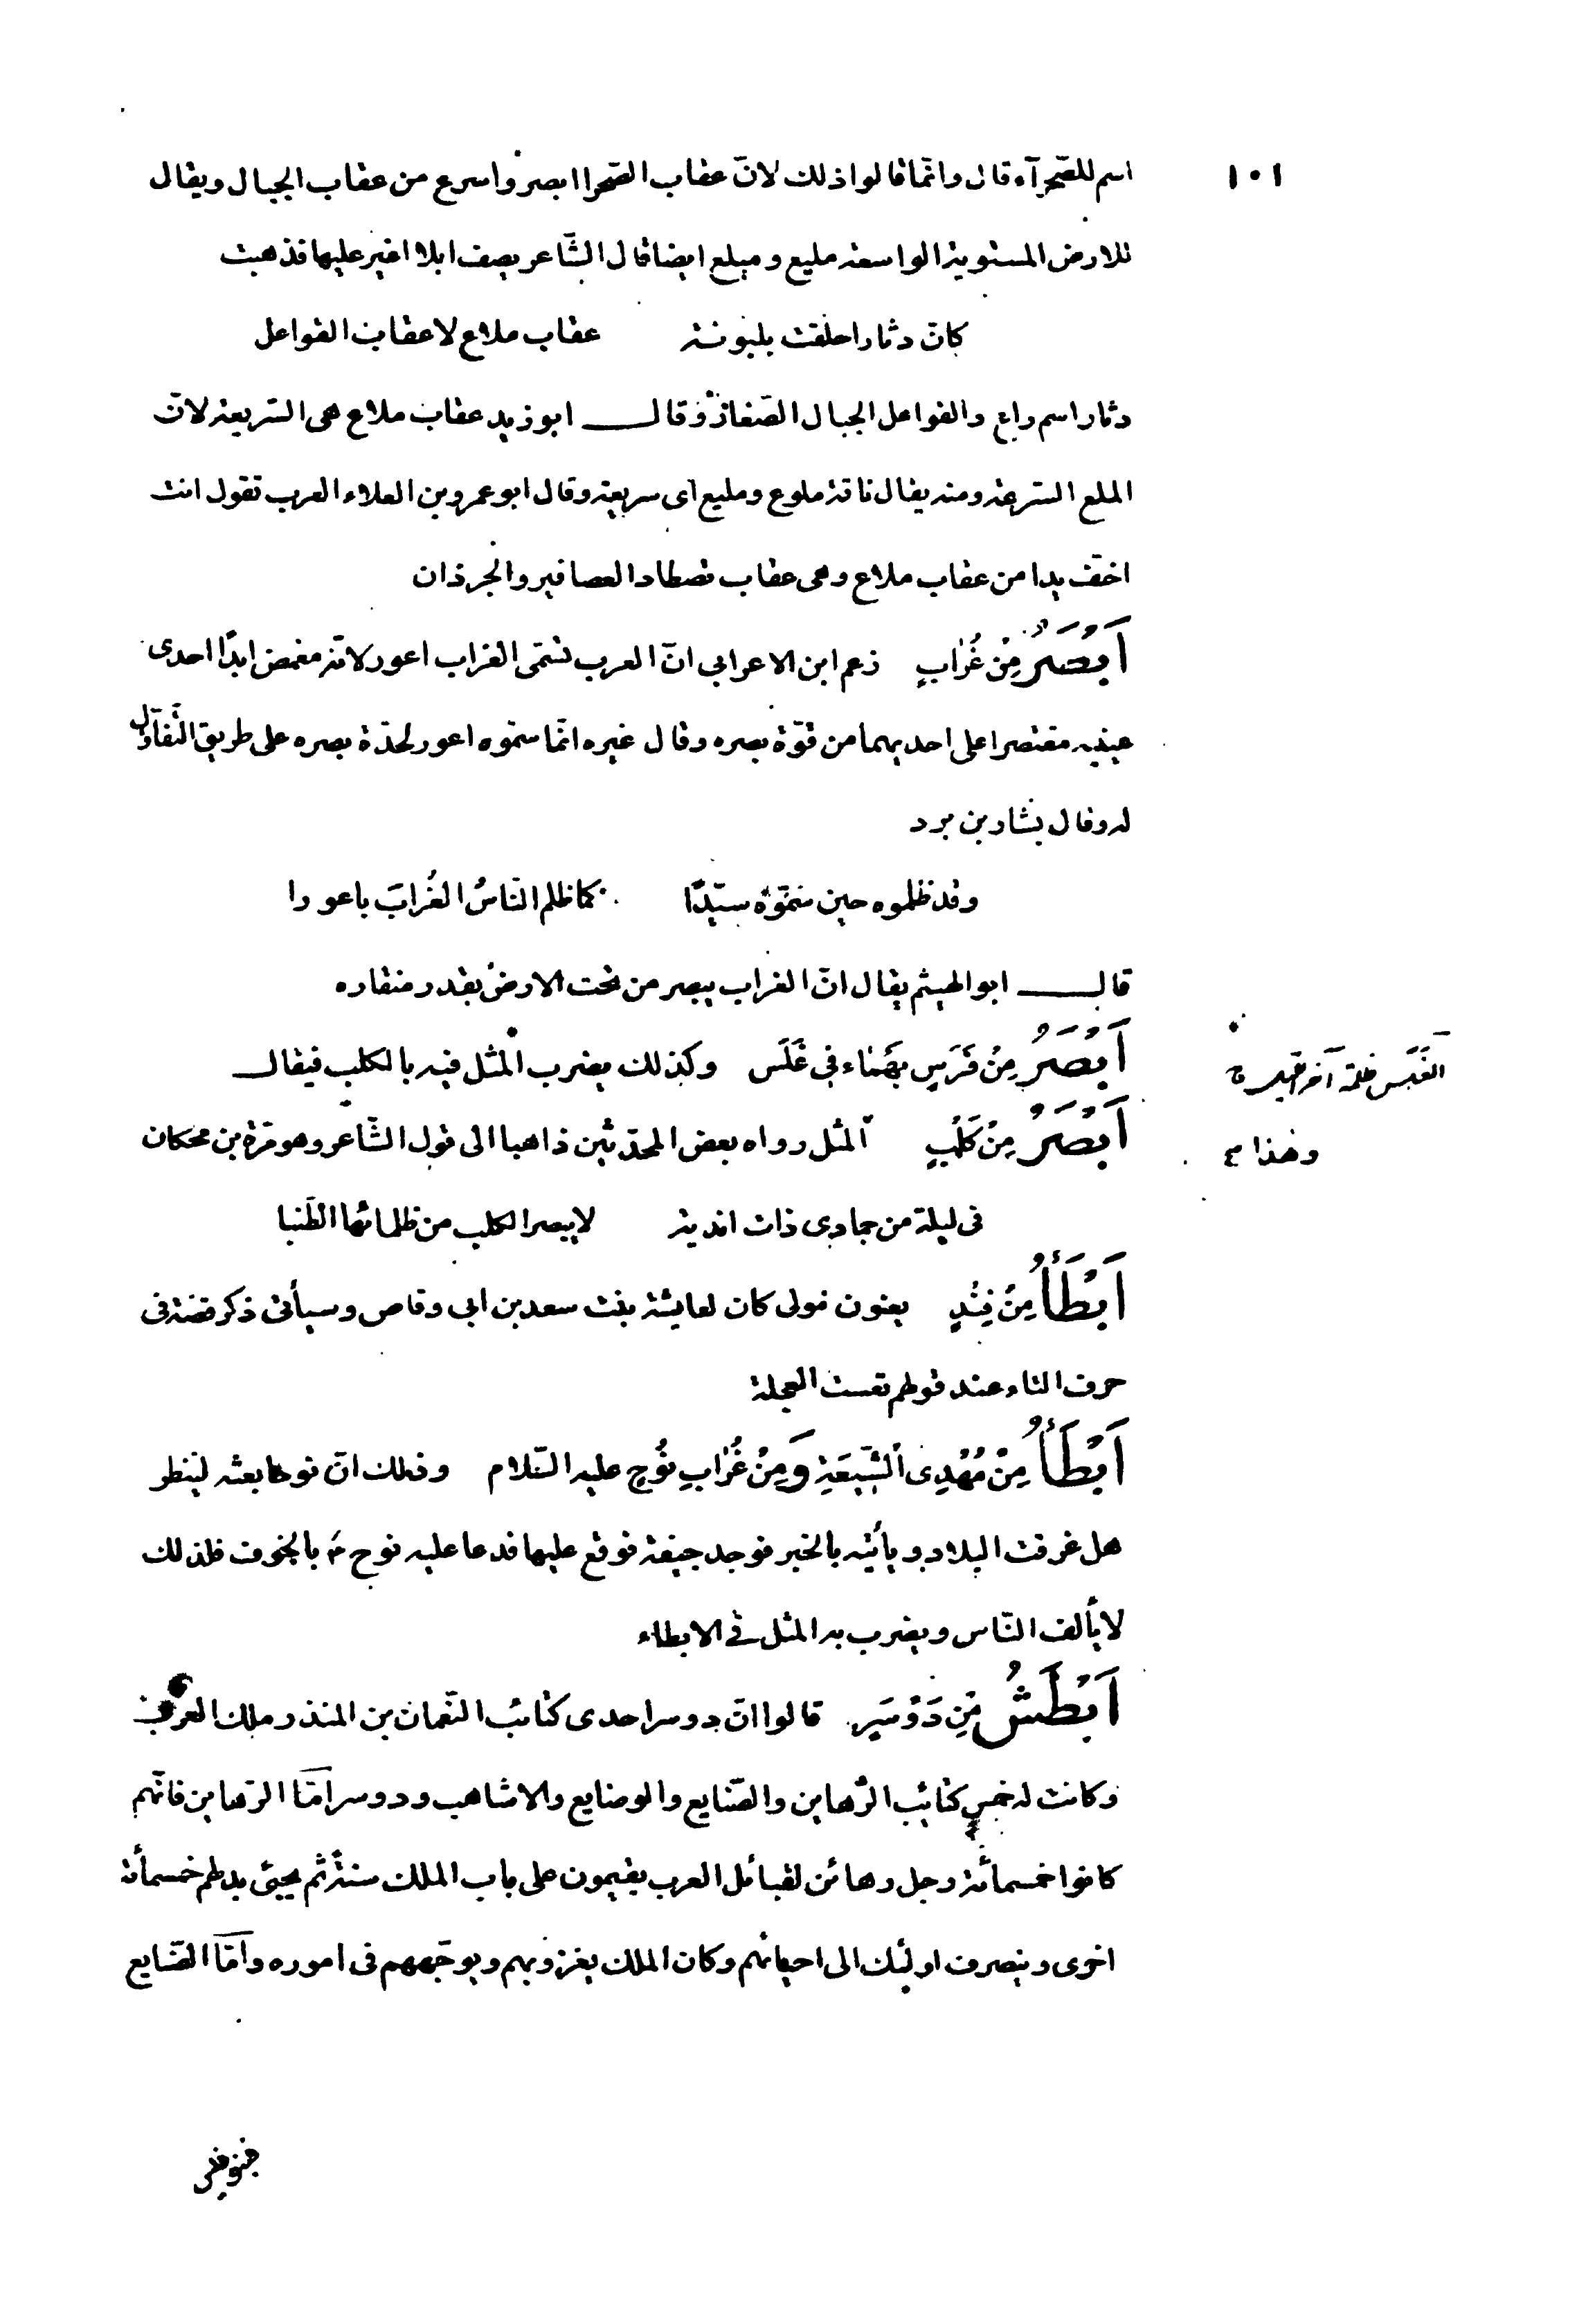 ١٠١
اسم للصّحرآء قال وانّما قالوا ذلك لانّ عقاب الصّحرا ابصر واسرع من عقاب الجبال ويقال
للارض المستوية الواسعة مليع وميلع ايضا قال الشّاعر يصف ابلا اغير عليها فذهبت
كانّ دثارا حلقت بلبونه عقاب ملاع لا عقاب القواعل
دثار اسم راع والقواعل الجبال الصّغار وقال ابو زيد عقاب ملاع هى السّريعة لانّ
الملع السّرعة ومنه يقال ناقة ملوع ومليع اى سريعة وقال ابو عمرو بن العلاء العرب تقول انت
اخفّ يدا من عقاب ملاع وهى عقاب تصطاد العصافير والجرذان
اَبْصَرُ مِنْ غُرٰابٍ زعم ابن الاعرابى انّ العرب تسمّى الغراب اعور لانّه مغمض ابدًا احدى
عينيه مقتصرا على احديهما من قوّة بصره وقال غيره انّما سمّوه اعور لحدّة بصره على طريق التّفأول
له وقال بشار بن برد
وقد ظلموه حين سمّوه سيّدًا كما ظلم النّاسُ الغُرابَ باعورا
قال ابو الهيثم يقال انّ الغراب يبصر من تحت الارض بقدر منقاره
اَبْصَرُ مِنْ فَرَسٍ بَهْمٰاءَ فِى غَلَسٍ وكذلك يضرب المثل فيه بالكلب فيقال
الغَلَس ظلمة آخر اللّيل
اَبْصَرُ مِنْ كَلْبٍ المثل رواه بعض المحدّثين ذاهبا الى قول الشّاعر وهو مرّة بن محكان
وهذا
فى ليلة من جمادى ذات اندية لا يبصر الكلب من ظلمائها الطّنبا
اَبْطَأُ مِنْ فِنْدٍ يعنون مولى كان لعايشة بنت سعد بن ابى وقاص وسيأتى ذكر قصّته فى
حرف التاء عند قولهم تعست العجلة
اَبْطَأُ مِنْ مَهْدِى الشّيعَةِ وَمِنْ غُرٰابِ نُوحٍ عليه السّلام وذلك انّ نوحا بعثه لينظر
هل غرقت البلاد ويأتيه بالخبر فوجد جيفة فوقع عليها فدعا عليه نوح ع بالخوف فلذلك
لا يألف النّاس ويضرب به المثل فى الابطاء
اَبْطَشُ مِنْ دَوْسَرٍ قالوا انّ دوسر احدى كتائب النّعمان بن المنذر ملك العرب
وكانت له خمس كتائب الرّهاين والصّنايع والوضايع والاشاهب ودوسر امّا الرّهاين فانّهم
كانوا خمسمائة رجل رهائن لقبائل العرب يقيمون على باب الملك سنة ثم يجيئ بدلهم خمسمأة
اخرى وينصرف اولئك الى احيائهم وكان الملك يغزو بهم ويوجّههم فى اموره وامّا الصّنايع